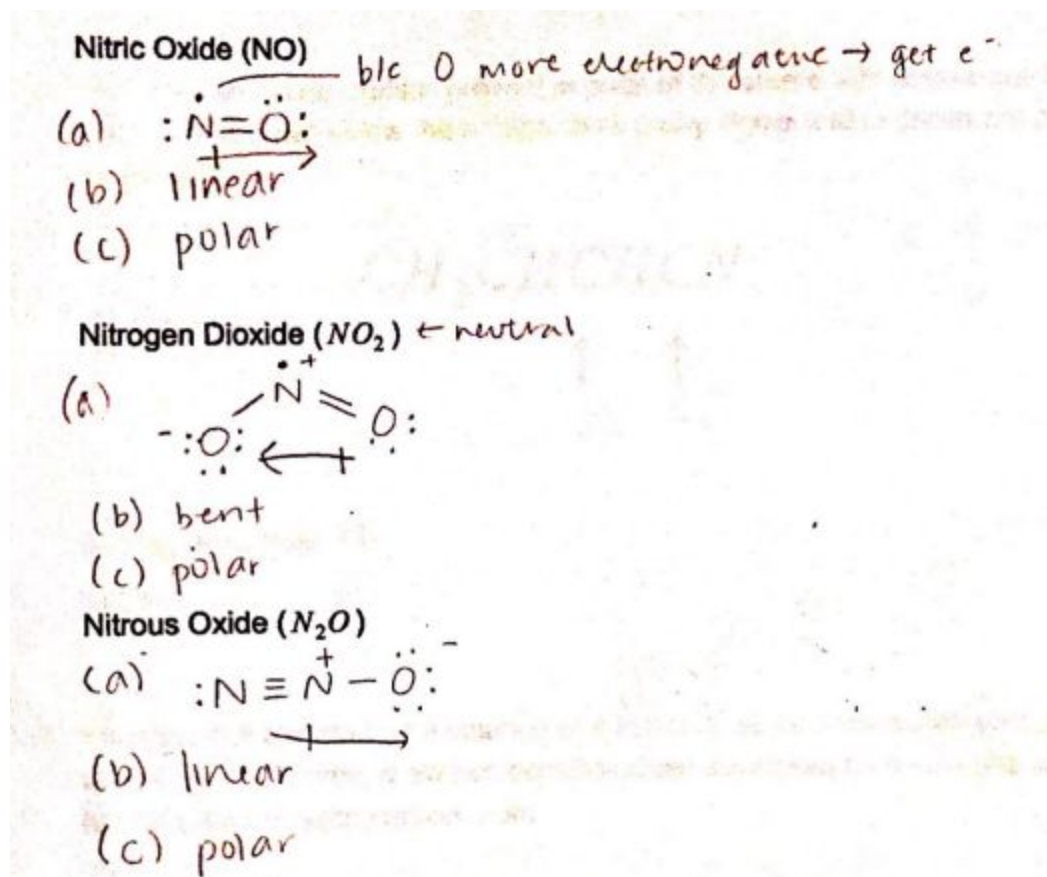 Nitric Oxide (NO)
b/c O more electronegative → get e⁻
(a) :N=O:
(b) linear
(c) polar
Nitrogen Dioxide (NO₂) ← neutral
(a) N⁺
⁻:O: O:
(b) bent
(c) polar
Nitrous Oxide (N₂O)
(a) :N≡N⁺–O:⁻
(b) linear
(c) polar